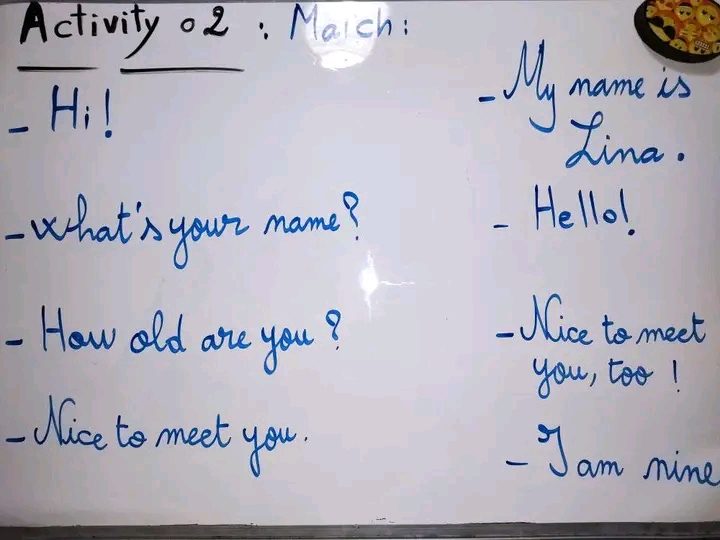 Activity 02 : Match :
- Hi!
- My name is
Lina.
- what's your name?
- Hello!
- How old are you?
- Nice to meet
you, too !
- Nice to meet you.
- I am nine